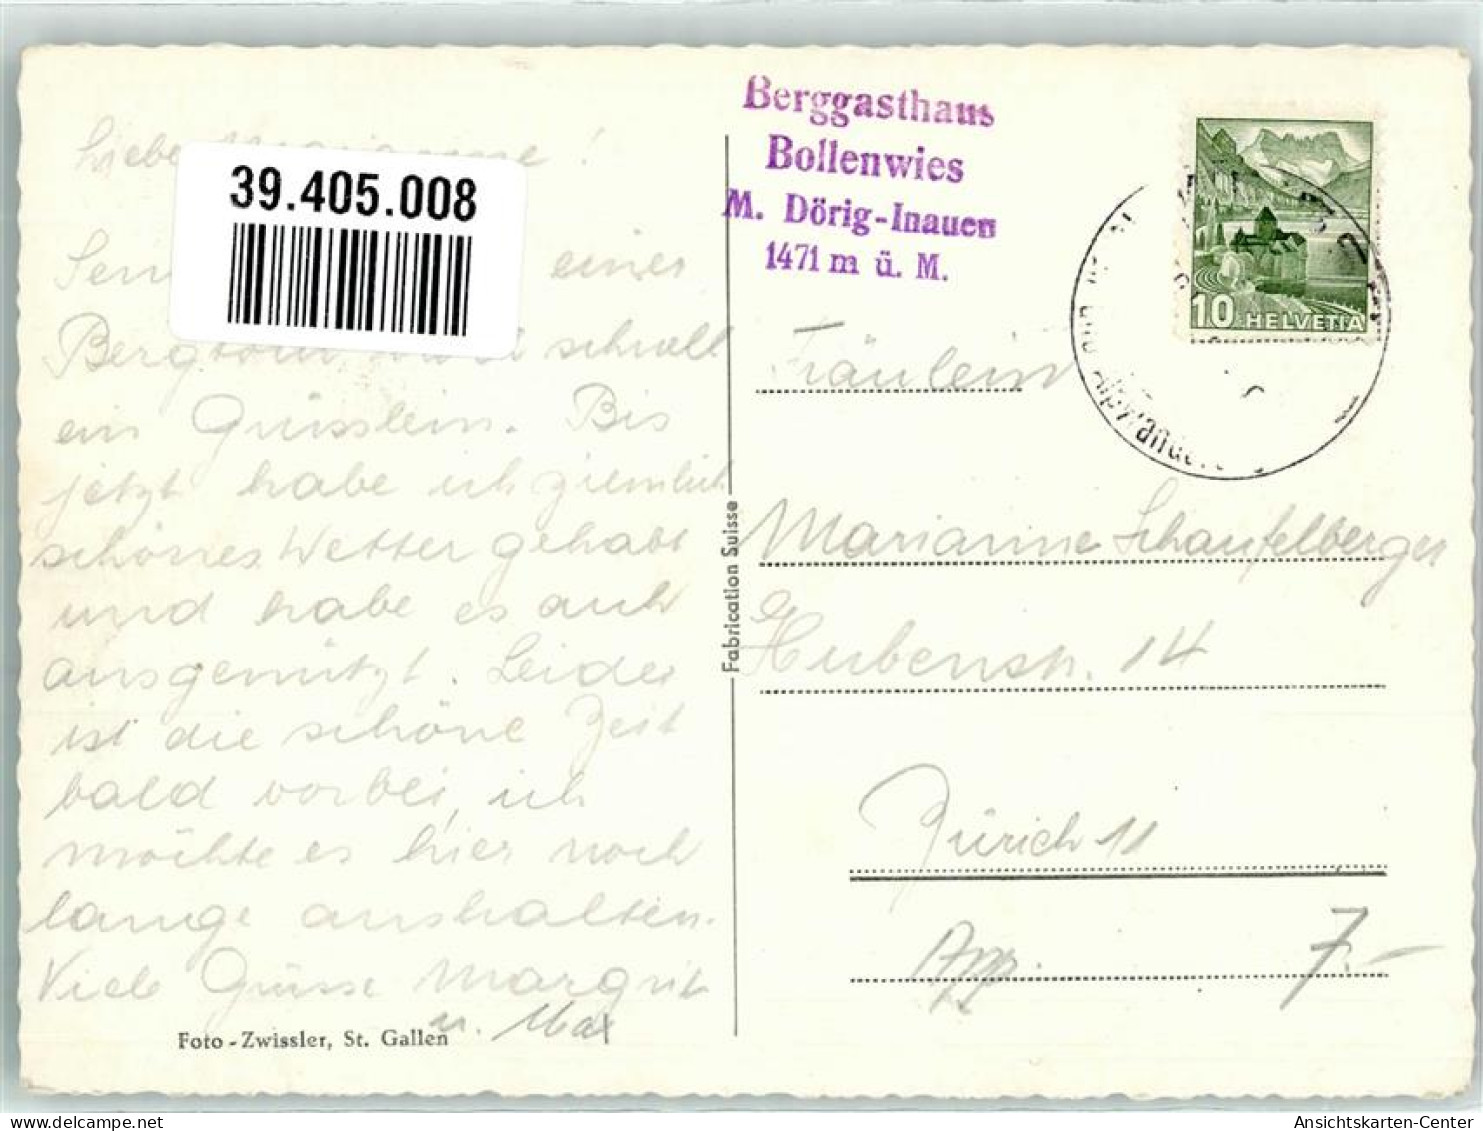 Liebe Marianne!
39.405.008
einer
Bergtour schnell
ein Grüsslein. Bis
jetzt habe ich ziemlich
schönes Wetter gehabt
und habe es auch
ausgenützt. Leider
ist die schöne Zeit
bald vorbei, ich
möchte es hier noch
lange aushalten.
Viele Grüsse Margrit
u. Max
Foto-Zwissler, St. Gallen
Fabrication Suisse
Berggasthaus
Bollenwies
M. Dörig-Inauen
1471 m ü. M.
10 HELVETIA
Fräulein
Marianne Schaufelberger
Hubenstr. 14
Zürich 11
App. 7.-
Ansichtskarten-Center